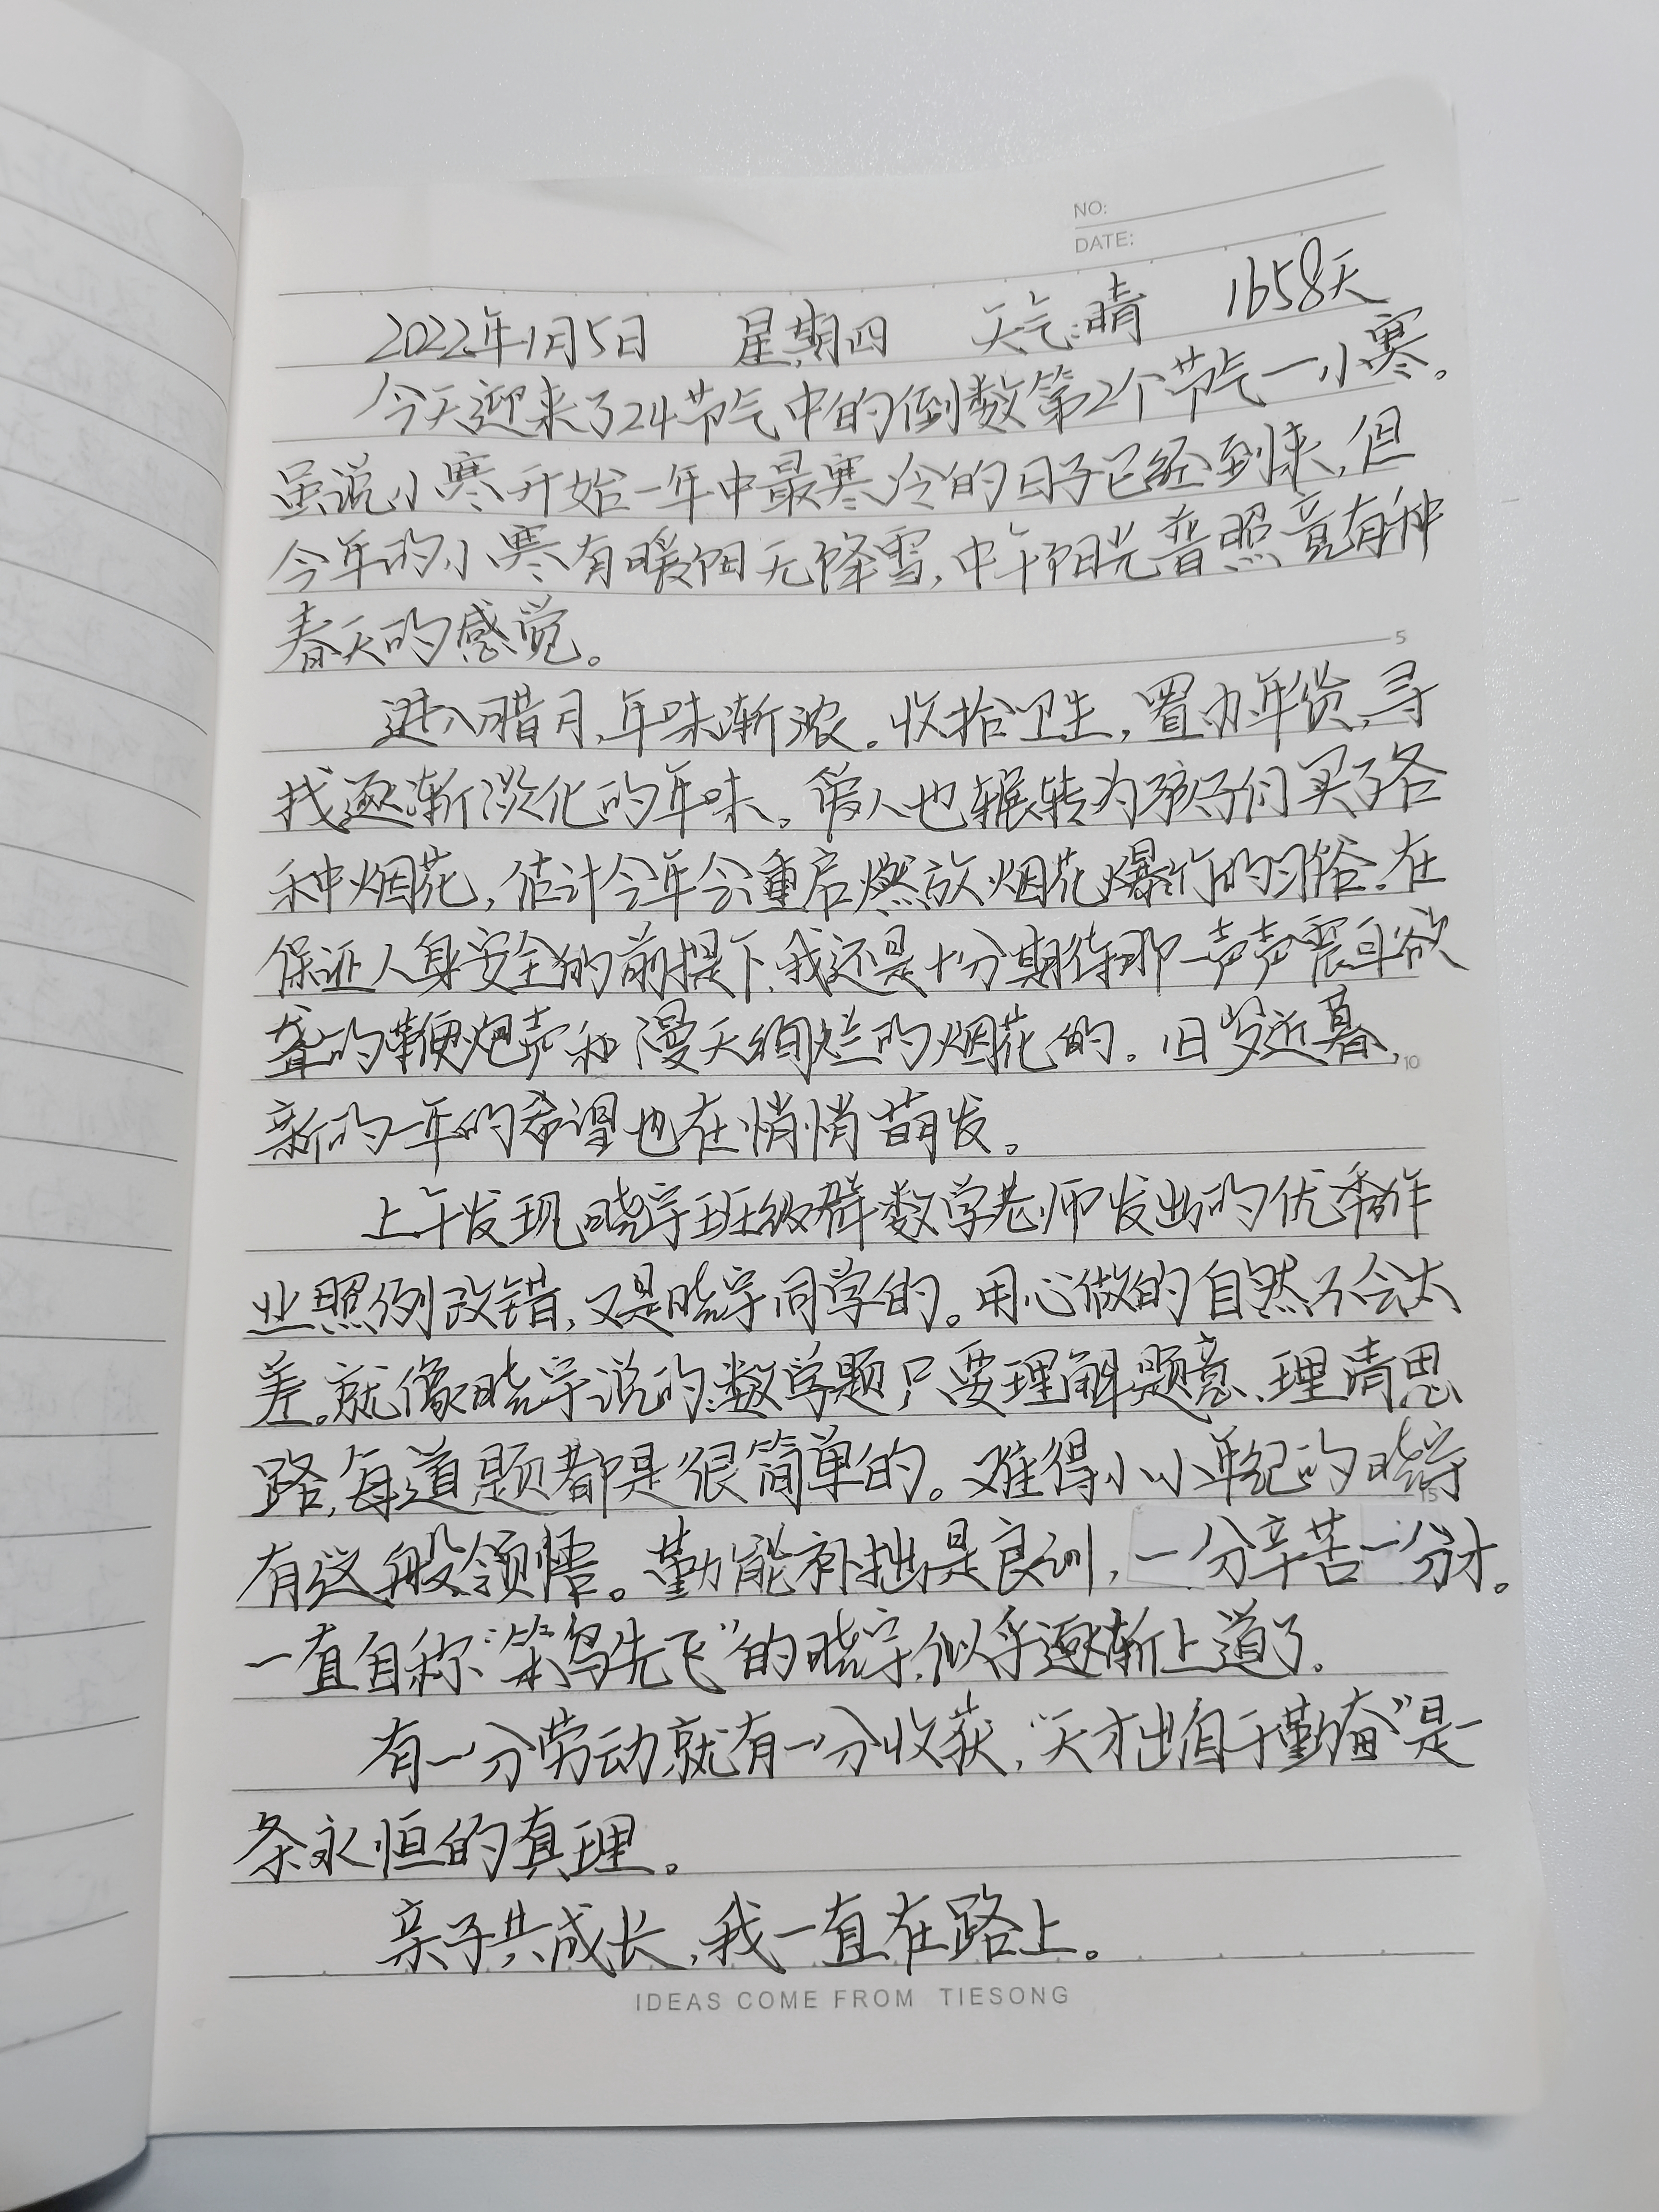 NO:
DATE:
2022年1月5日 星期四 天气:晴 1658天
今天迎来了24节气中的倒数第2个节气—小寒。
虽说小寒开始一年中最寒冷的日子已经到来,但
今年的小寒有暖阳无降雪,中午阳光普照竟有种
春天的感觉。
5
进入腊月,年味渐浓。收拾卫生,置办年货,寻
找逐渐淡化的年味。爱人也辗转为孩子们买了各
种烟花,估计今年会重启燃放烟花爆竹的习俗.在
保证人身安全的前提下,我还是十分期待那一声声震耳欲
聋的鞭炮声和漫天绚烂的烟花的。旧岁近暮,
10
新的一年的希望也在悄悄萌发。
上午发现晓宇班级群数学老师发出的优秀作
业照例改错,又是晓宇同学的。用心做的自然不会太
差。就像晓宇说的,数学题只要理解题意、理清思
路,每道题都是很简单的。难得小小年纪的晓宇
15
有这般领悟。勤能补拙是良训,一分辛苦一分才。
一直自称“笨鸟先飞”的晓宇,似乎逐渐上道了.
有一分劳动就有一分收获,“天才出自于勤奋”是一
条永恒的真理。
亲子共成长,我一直在路上。
IDEAS COME FROM TIESONG